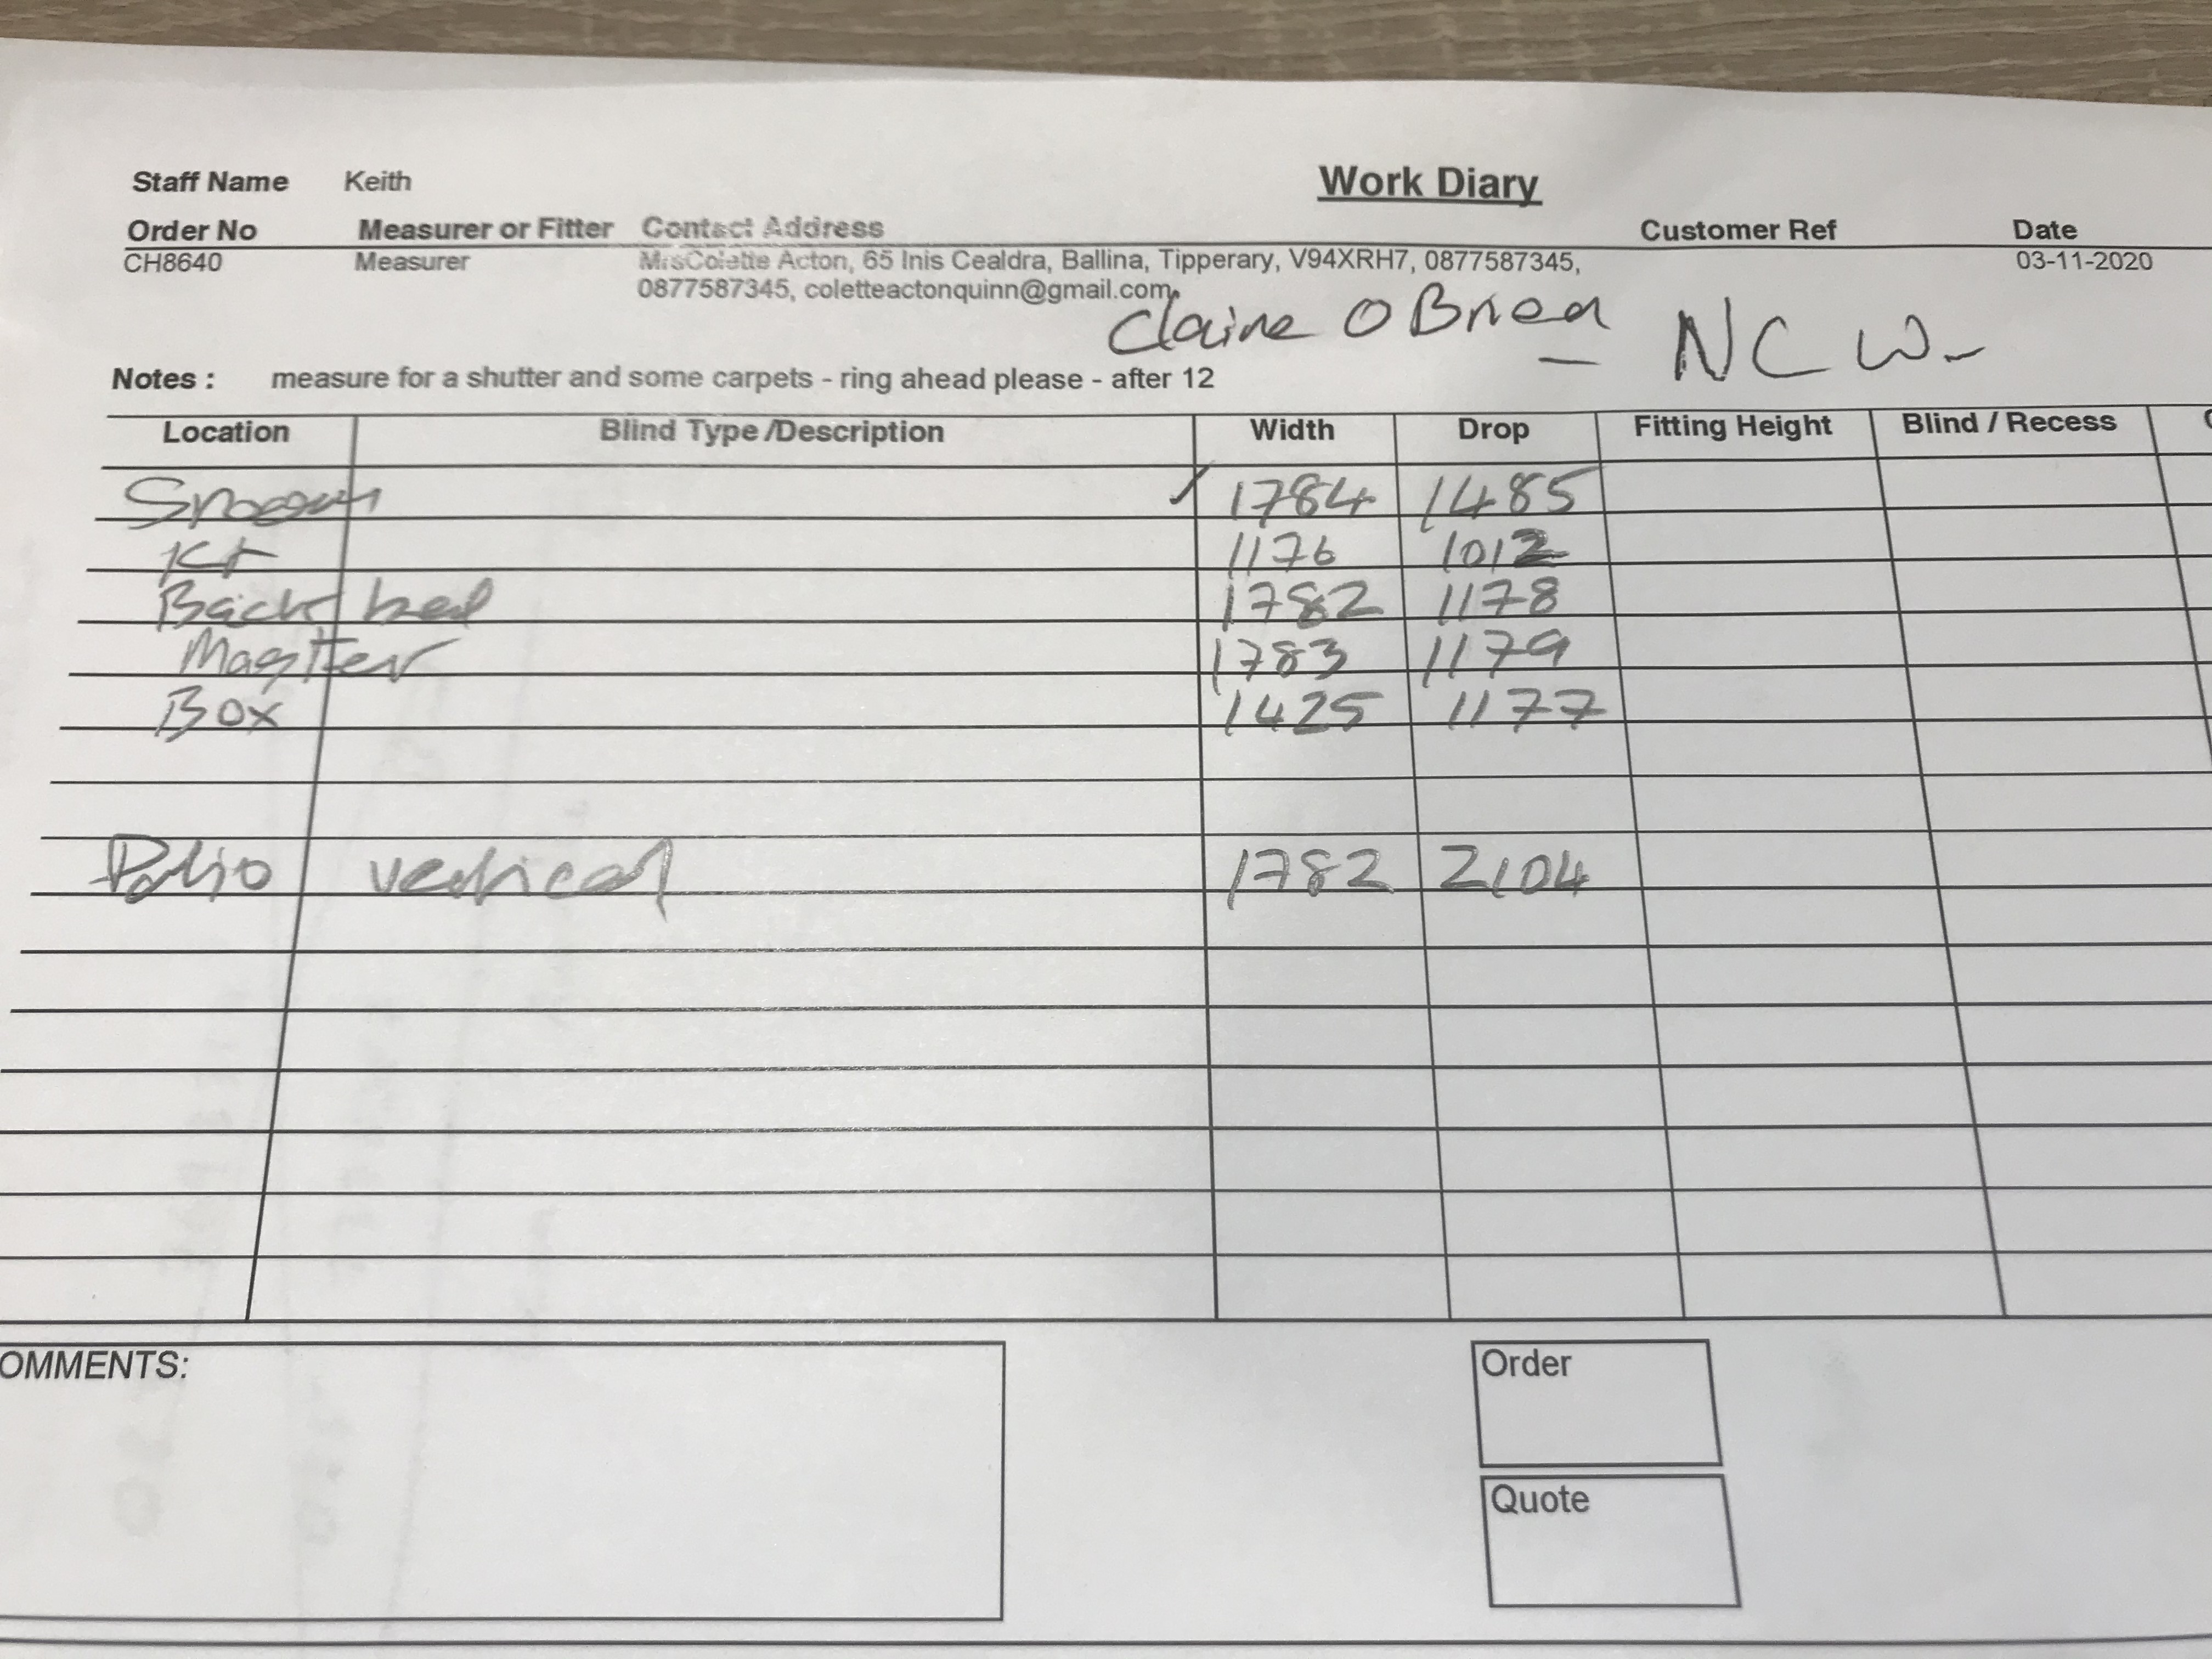 Work Diary
Staff Name Keith
Order No Measurer or Fitter Contact Address Customer Ref Date
CH8640 Measurer MrsColette Acton, 65 Inis Cealdra, Ballina, Tipperary, V94XRH7, 0877587345, 03-11-2020
0877587345, coletteactonquinn@gmail.com,
Claire O Brien - NCW-
Notes : measure for a shutter and some carpets - ring ahead please - after 12
Location Blind Type /Description Width Drop Fitting Height Blind / Recess
1784 1485
Kt 1176 1012
Back bed 1782 1178
Master 1783 1179
Box 1425 1177
Patio vertical 1782 2104
OMMENTS:
Order
Quote